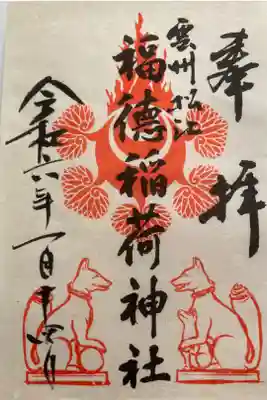 奉拝
雲州松江
福德稲荷神社
令和六年一月十四日